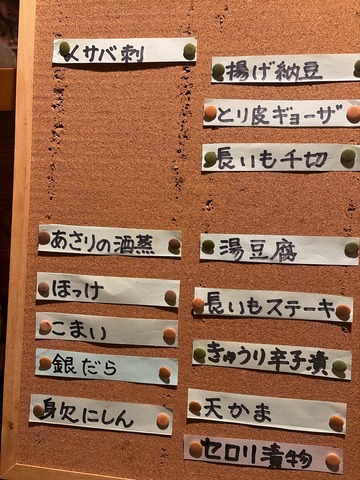 〆サバ刺
あさりの酒蒸
ほっけ
こまい
銀だら
身欠にしん
揚げ納豆
とり皮ギョーザ
長いも千切
湯豆腐
長いもステーキ
きゅうり辛子漬
天かま
セロリ漬物